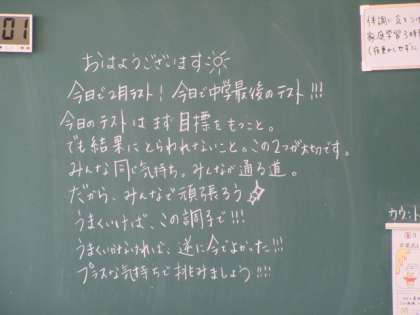 01
おはようございます
今日で2月テスト！今日で中学最後のテスト!!!
今日のテストはまず目標をもつこと。
でも結果にとらわれないこと。この2つが大切です。
みんな同じ気持ち。みんなが通る道。
だから、みんなで頑張ろう
うまくいけば、この調子で!!!
うまくいかなければ、逆に今でよかった!!!
プラスな気持ちで挑みましょう!!!
体調に気をつけ
家庭学習3時間
カウント